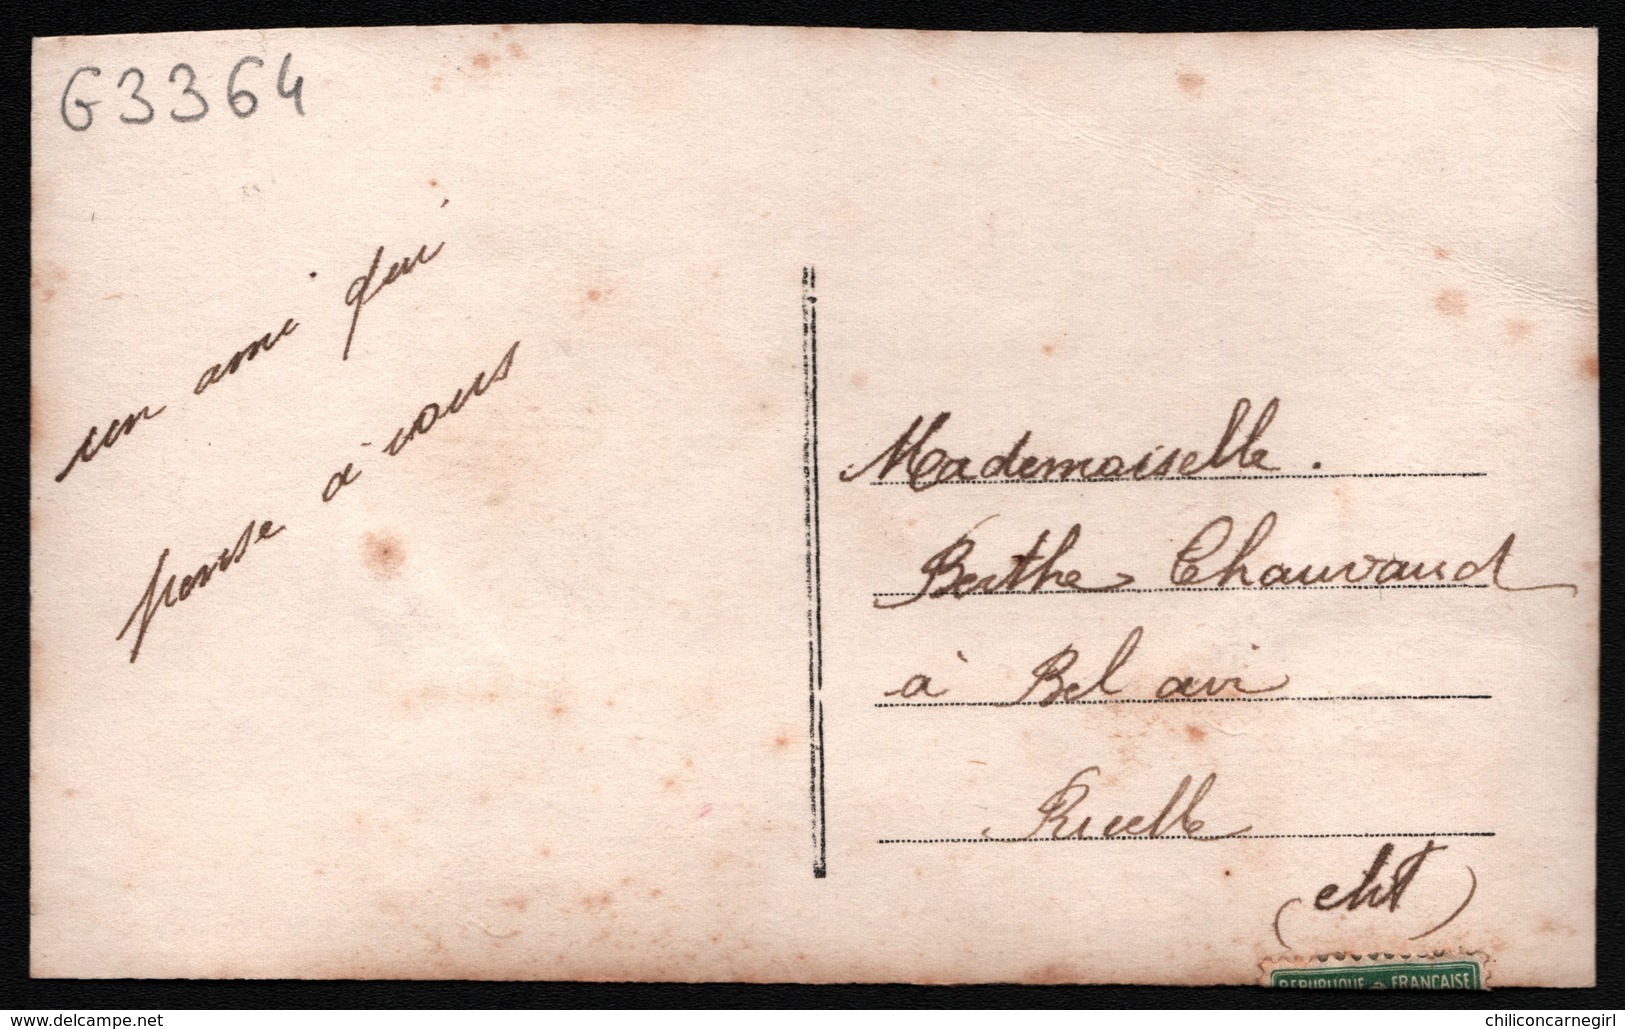 G3364
un ami qui
pense à vous
Mademoiselle.
Berthe Chauvaud
à Bel avi
Ruelle
(cht)
REPUBLIQUE FRANÇAISE
https://www.delcampe.net
chiliconcarnegirl